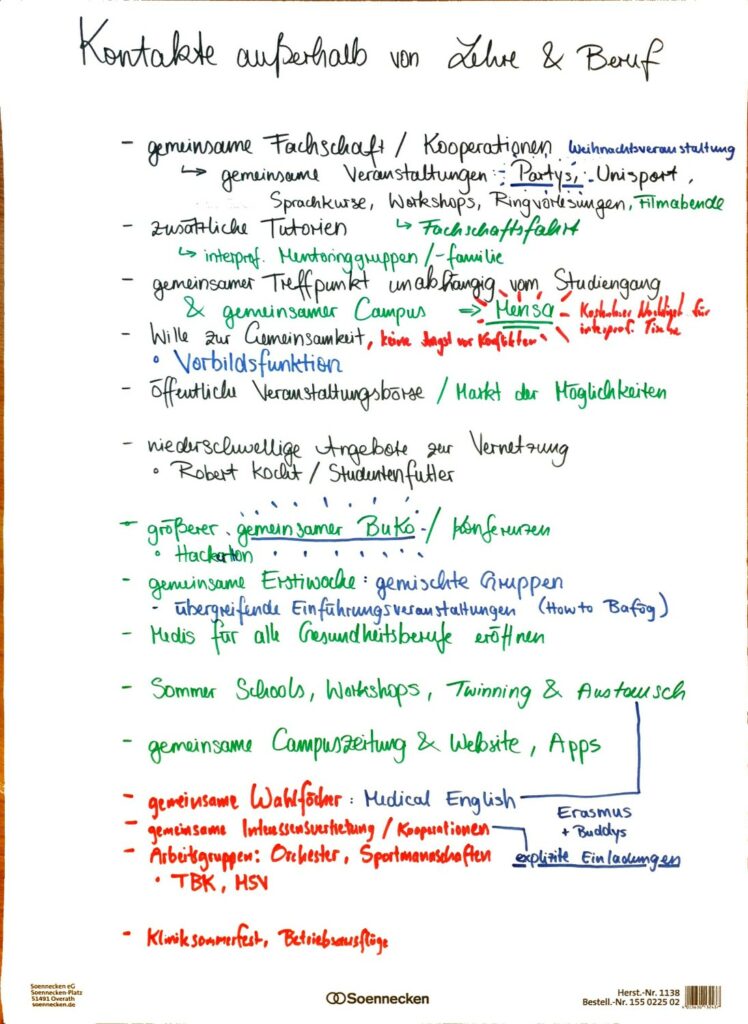 Kontakte außerhalb von Lehre & Beruf
- gemeinsame Fachschaft / Kooperationen Weihnachtsveranstaltung
↳ gemeinsame Veranstaltungen: Partys, Unisport,
Sprachkurse, Workshops, Ringvorlesungen, Filmabende
- zusätzliche Tutorien ↳ Fachschaftsfahrt
↳ interprof. Mentoringgruppen /-familie
- gemeinsamer Treffpunkt unabhängig vom Studiengang
& gemeinsamer Campus => Mensa - Kostenloser für
interprof. Tische
- Wille zur Gemeinsamkeit, keine Angst vor Konflikten
• Vorbildsfunktion
- öffentliche Veranstaltungsbörse / Markt der Möglichkeiten
- niederschwellige Angebote zur Vernetzung
• Robert Kocht / Studentenfutter
- größerer gemeinsamer BuKo / Konferenzen
• Hackerton
- gemeinsame Erstiwoche: gemischte Gruppen
- übergreifende Einführungsveranstaltungen (How to Bafög)
- Medis für alle Gesundheitsberufe eröffnen
- Sommer Schools, Workshops, Twinning & Austausch
- gemeinsame Campuszeitung & Website, Apps
- gemeinsame Wahlfächer: Medical English
Erasmus
+ Buddys
- gemeinsame Interessensvertretung / Kooperationen
explizite Einladungen
- Arbeitsgruppen: Orchester, Sportmannschaften
• TBK, MSV
- Kliniksommerfest, Betriebsausflüge
Soennecken eG
Soennecken-Platz
51491 Overath
soennecken.de
Soennecken
Herst.-Nr. 1138
Bestell.-Nr. 155 0225 02